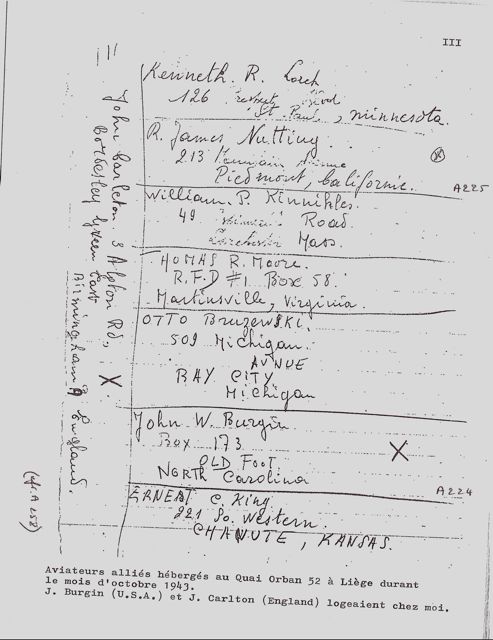 III
Kenneth. R. Lorch
126
St Paul, minnesota.
R. James Nutting.
213 Mountain Avenue
Piedmont, Californie.
A225
William. P. Kinnikles.
49 Road.
Dorchester Mass.
HOMAS R. Moore.
R.F.D #1 Box 58.
Martinsville, Virginia.
OTTO Bruzewski.
509 Michigan.
AVNUE
BAY CITY
Michigan
John W. Burgin
Box 173
OLD Foot.
NORTH Carolina
X
A224
ERNEAT C. King
221 So. Western.
CHANUTE, KANSAS.
John Carleton 3 Alpton Rd,
Bordesley Green East
Birmingham 9 England.
X
(cfr. A 258)
Aviateurs alliés hébergés au Quai Orban 52 à Liège durant
le mois d'octobre 1943.
J. Burgin (U.S.A.) et J. Carlton (England) logeaient chez moi.